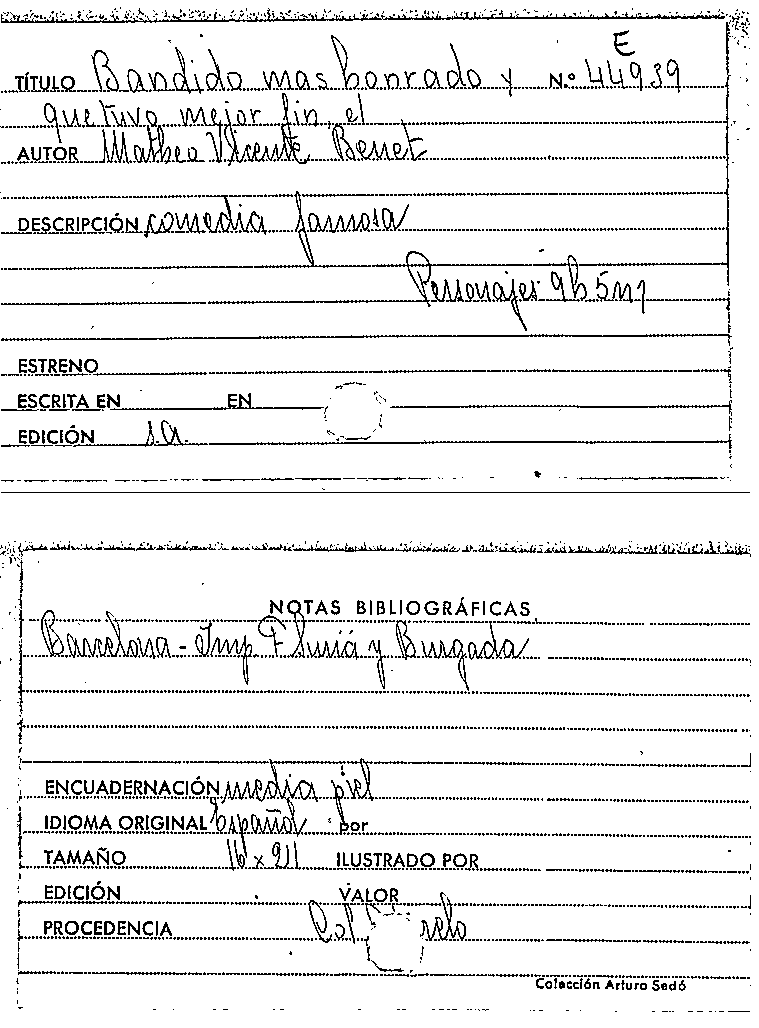 E
TÍTULO Bandido mas honrado y N.º 44939
que tuvo mejor fin, el
AUTOR Matheo Vicente Benet
DESCRIPCIÓN comedia famosa
Personajes 9h 5m
ESTRENO
ESCRITA EN EN
EDICIÓN s.a.
NOTAS BIBLIOGRÁFICAS
Barcelona - Imp y Burgada
ENCUADERNACIÓN media piel
IDIOMA ORIGINAL Español por
TAMAÑO ILUSTRADO POR
EDICIÓN VALOR
PROCEDENCIA Col
Colección Arturo Sedó